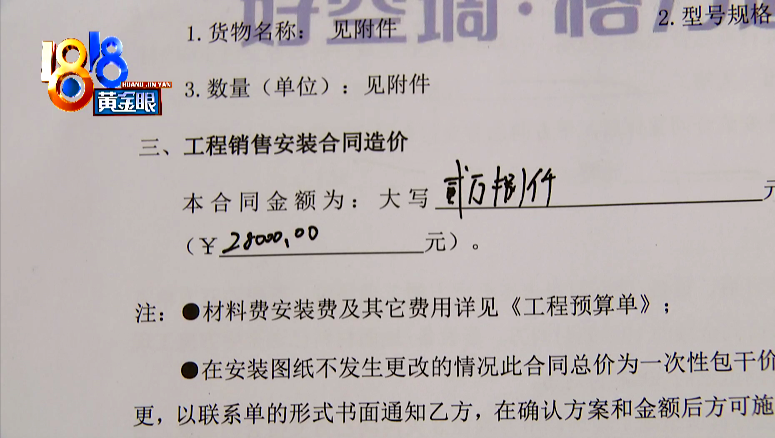 好空调·格
1.货物名称： 见附件
2.型号规格
1818
HUANG JIN YAN
黄金眼
3.数量（单位）：见附件
三、工程销售安装合同造价
本合同金额为：大写 贰万捌仟 元
（¥ 28000.00 元）。
注：●材料费安装费及其它费用详见《工程预算单》；
●在安装图纸不发生更改的情况此合同总价为一次性包干价
更，以联系单的形式书面通知乙方，在确认方案和金额后方可施